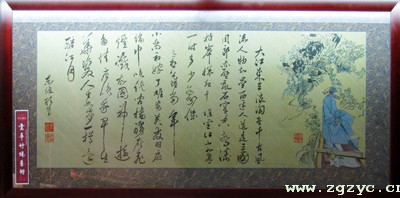 大江东去浪淘尽千古风
流人物故垒西边人道是三国
周郎赤壁乱石穿空惊涛
拍岸卷起千堆雪江山如画
一时多少豪杰
遥想公瑾当年
小乔初嫁了雄姿英发羽扇
纶巾谈笑间樯橹灰飞
烟灭故国神游
多情应笑我早生
华发人生如梦一樽还
酹江月
www.zgzyc.c